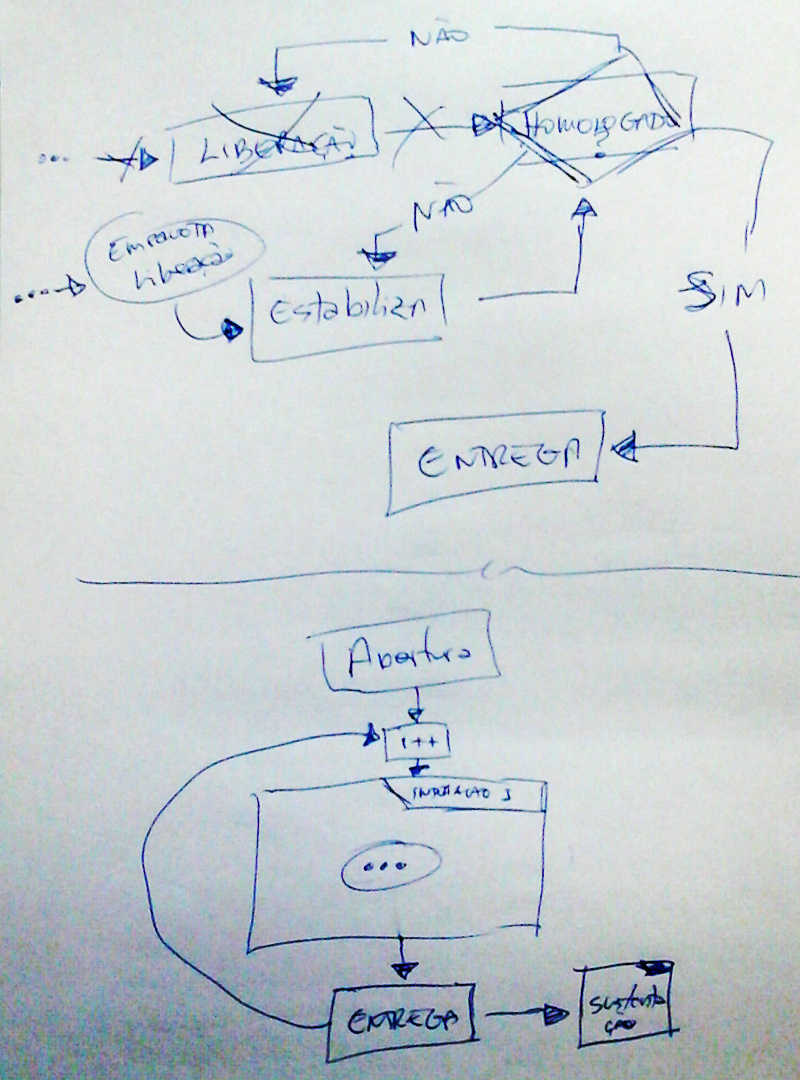 NÃO
LIBERAÇÃO
HOMOLOGADO
?
NÃO
EMPACOTA
LIBERAÇÃO
Estabilizar
SIM
ENTREGA
Abertura
i++
•••
ENTREGA
Sustenta
ção